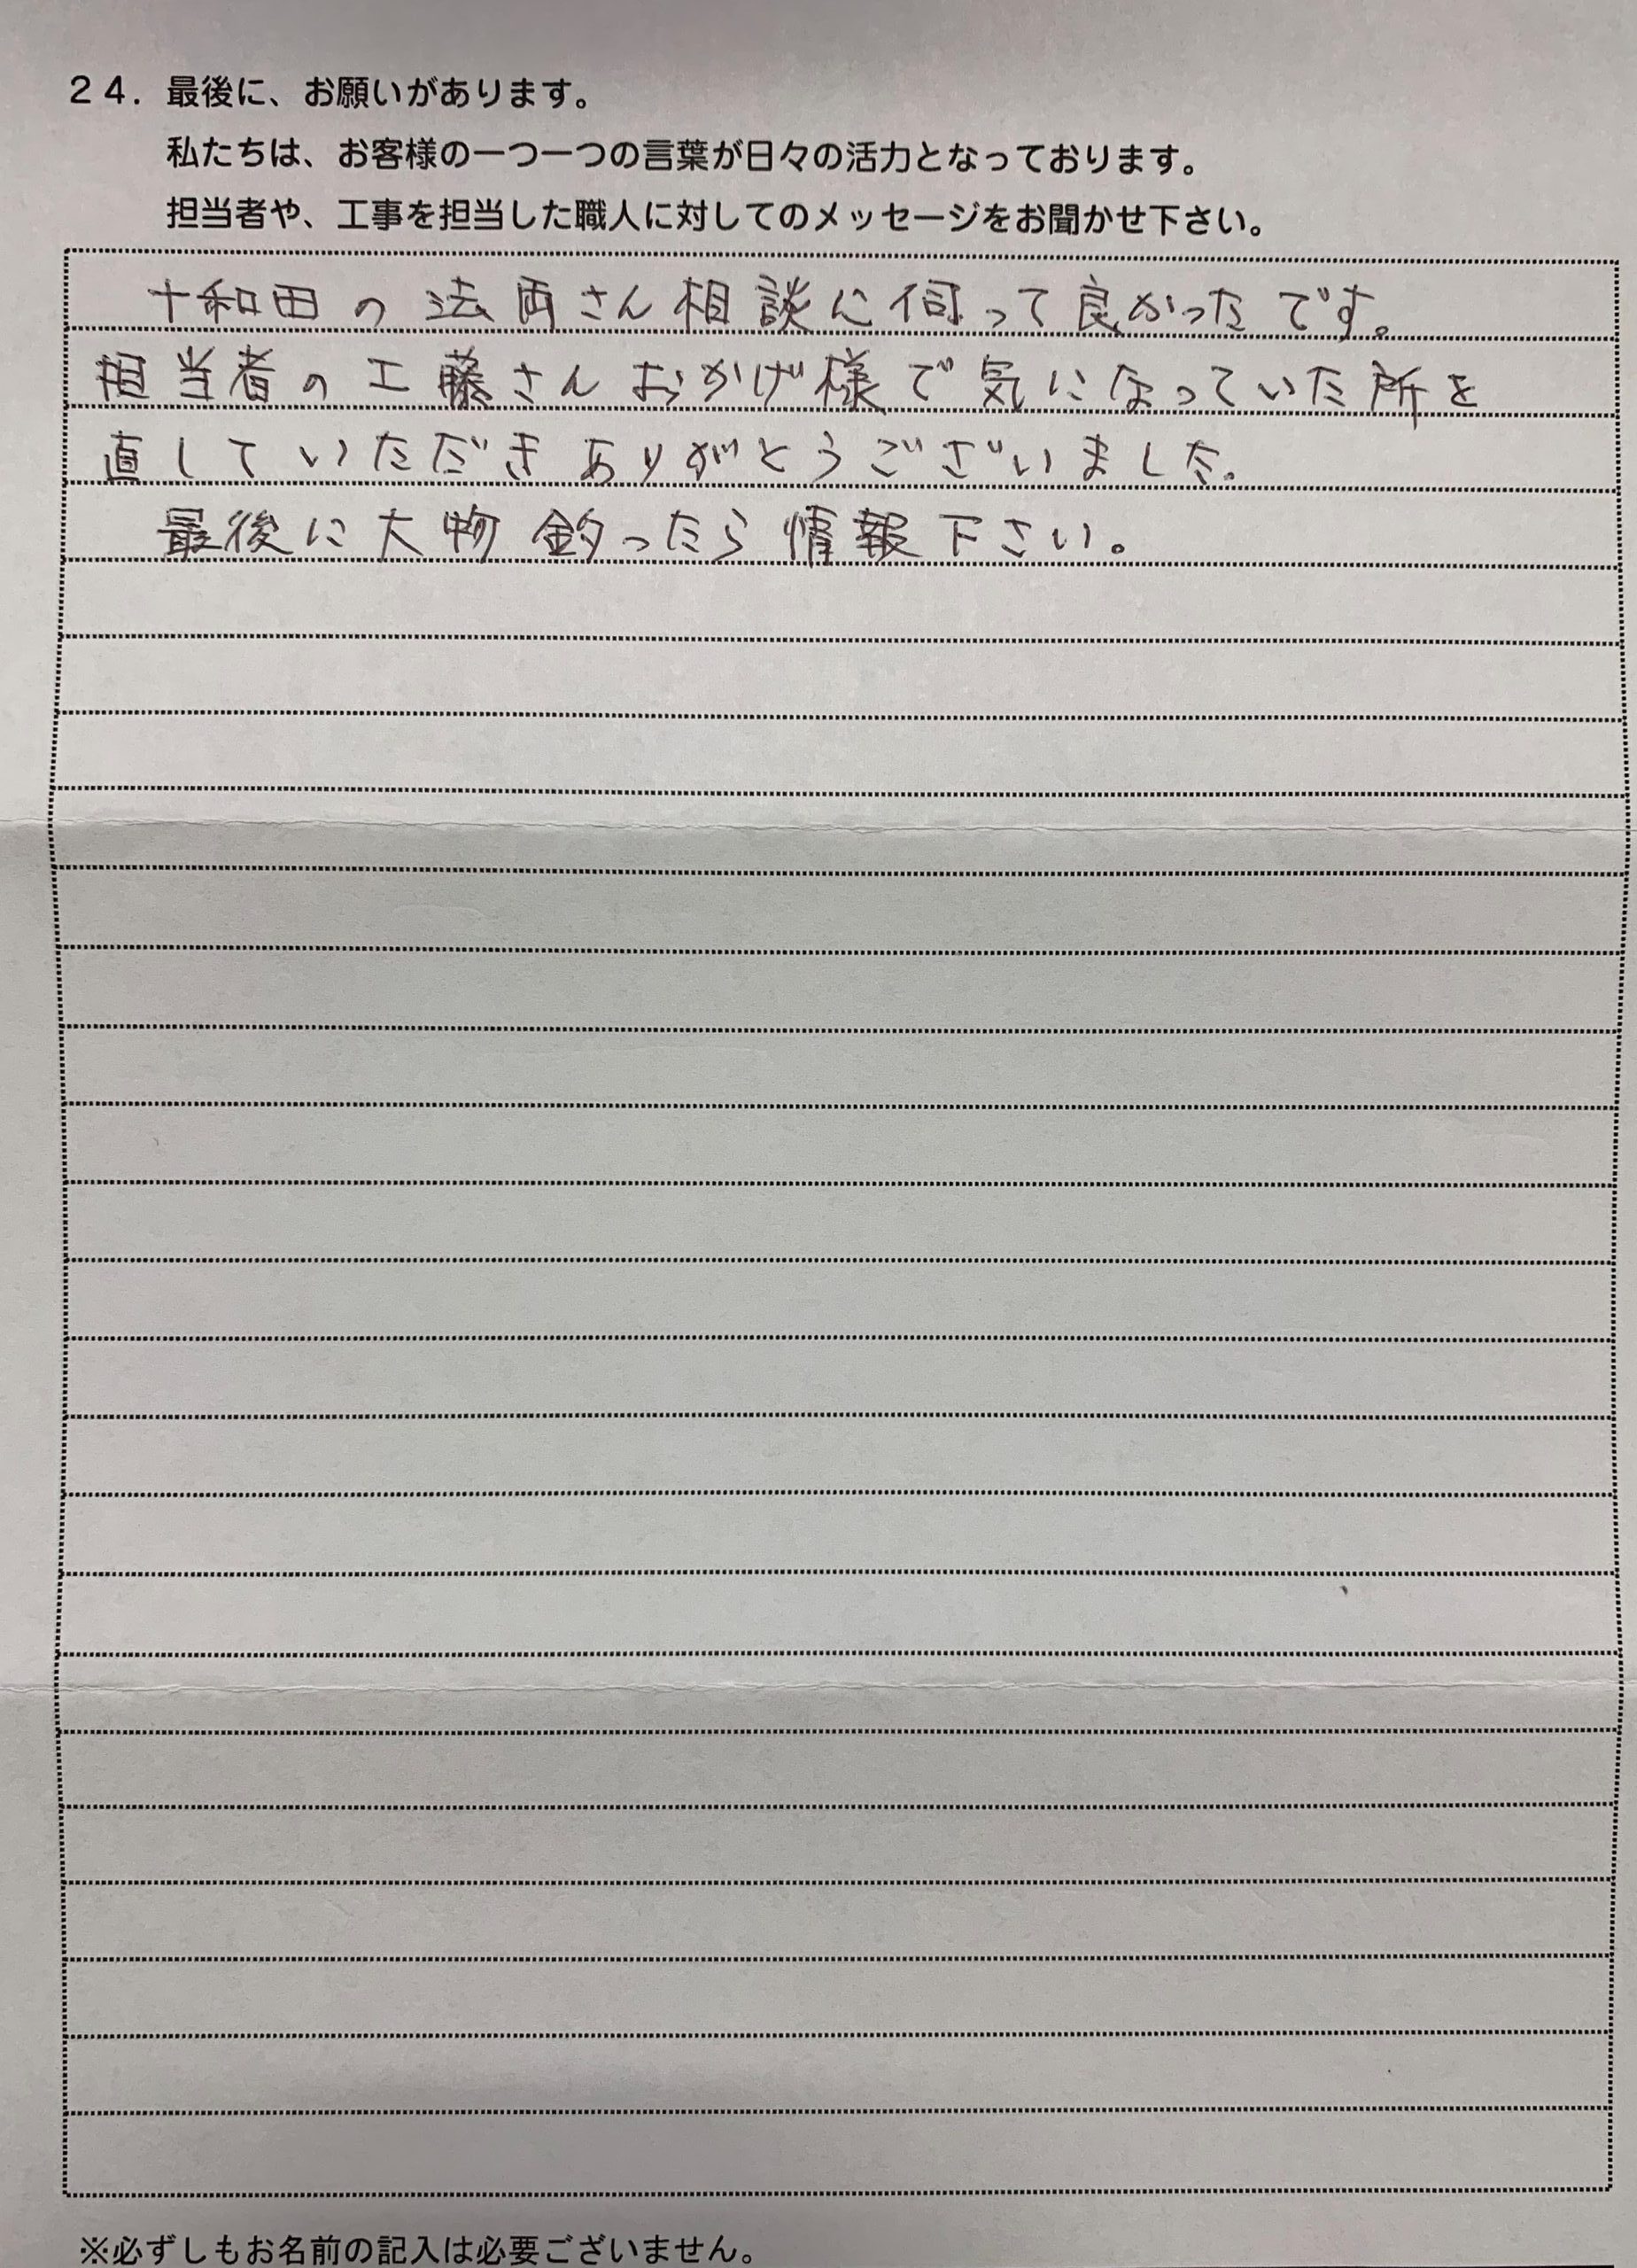 24. 最後に、お願いがあります。
私たちは、お客様の一つ一つの言葉が日々の活力となっております。
担当者や、工事を担当した職人に対してのメッセージをお聞かせ下さい。
十和田の法両さん相談に伺って良かったです。
担当者の工藤さんおかげ様で気になっていた所を
直していただきありがとうございました。
最後に大物釣ったら情報下さい。
※必ずしもお名前の記入は必要ございません。